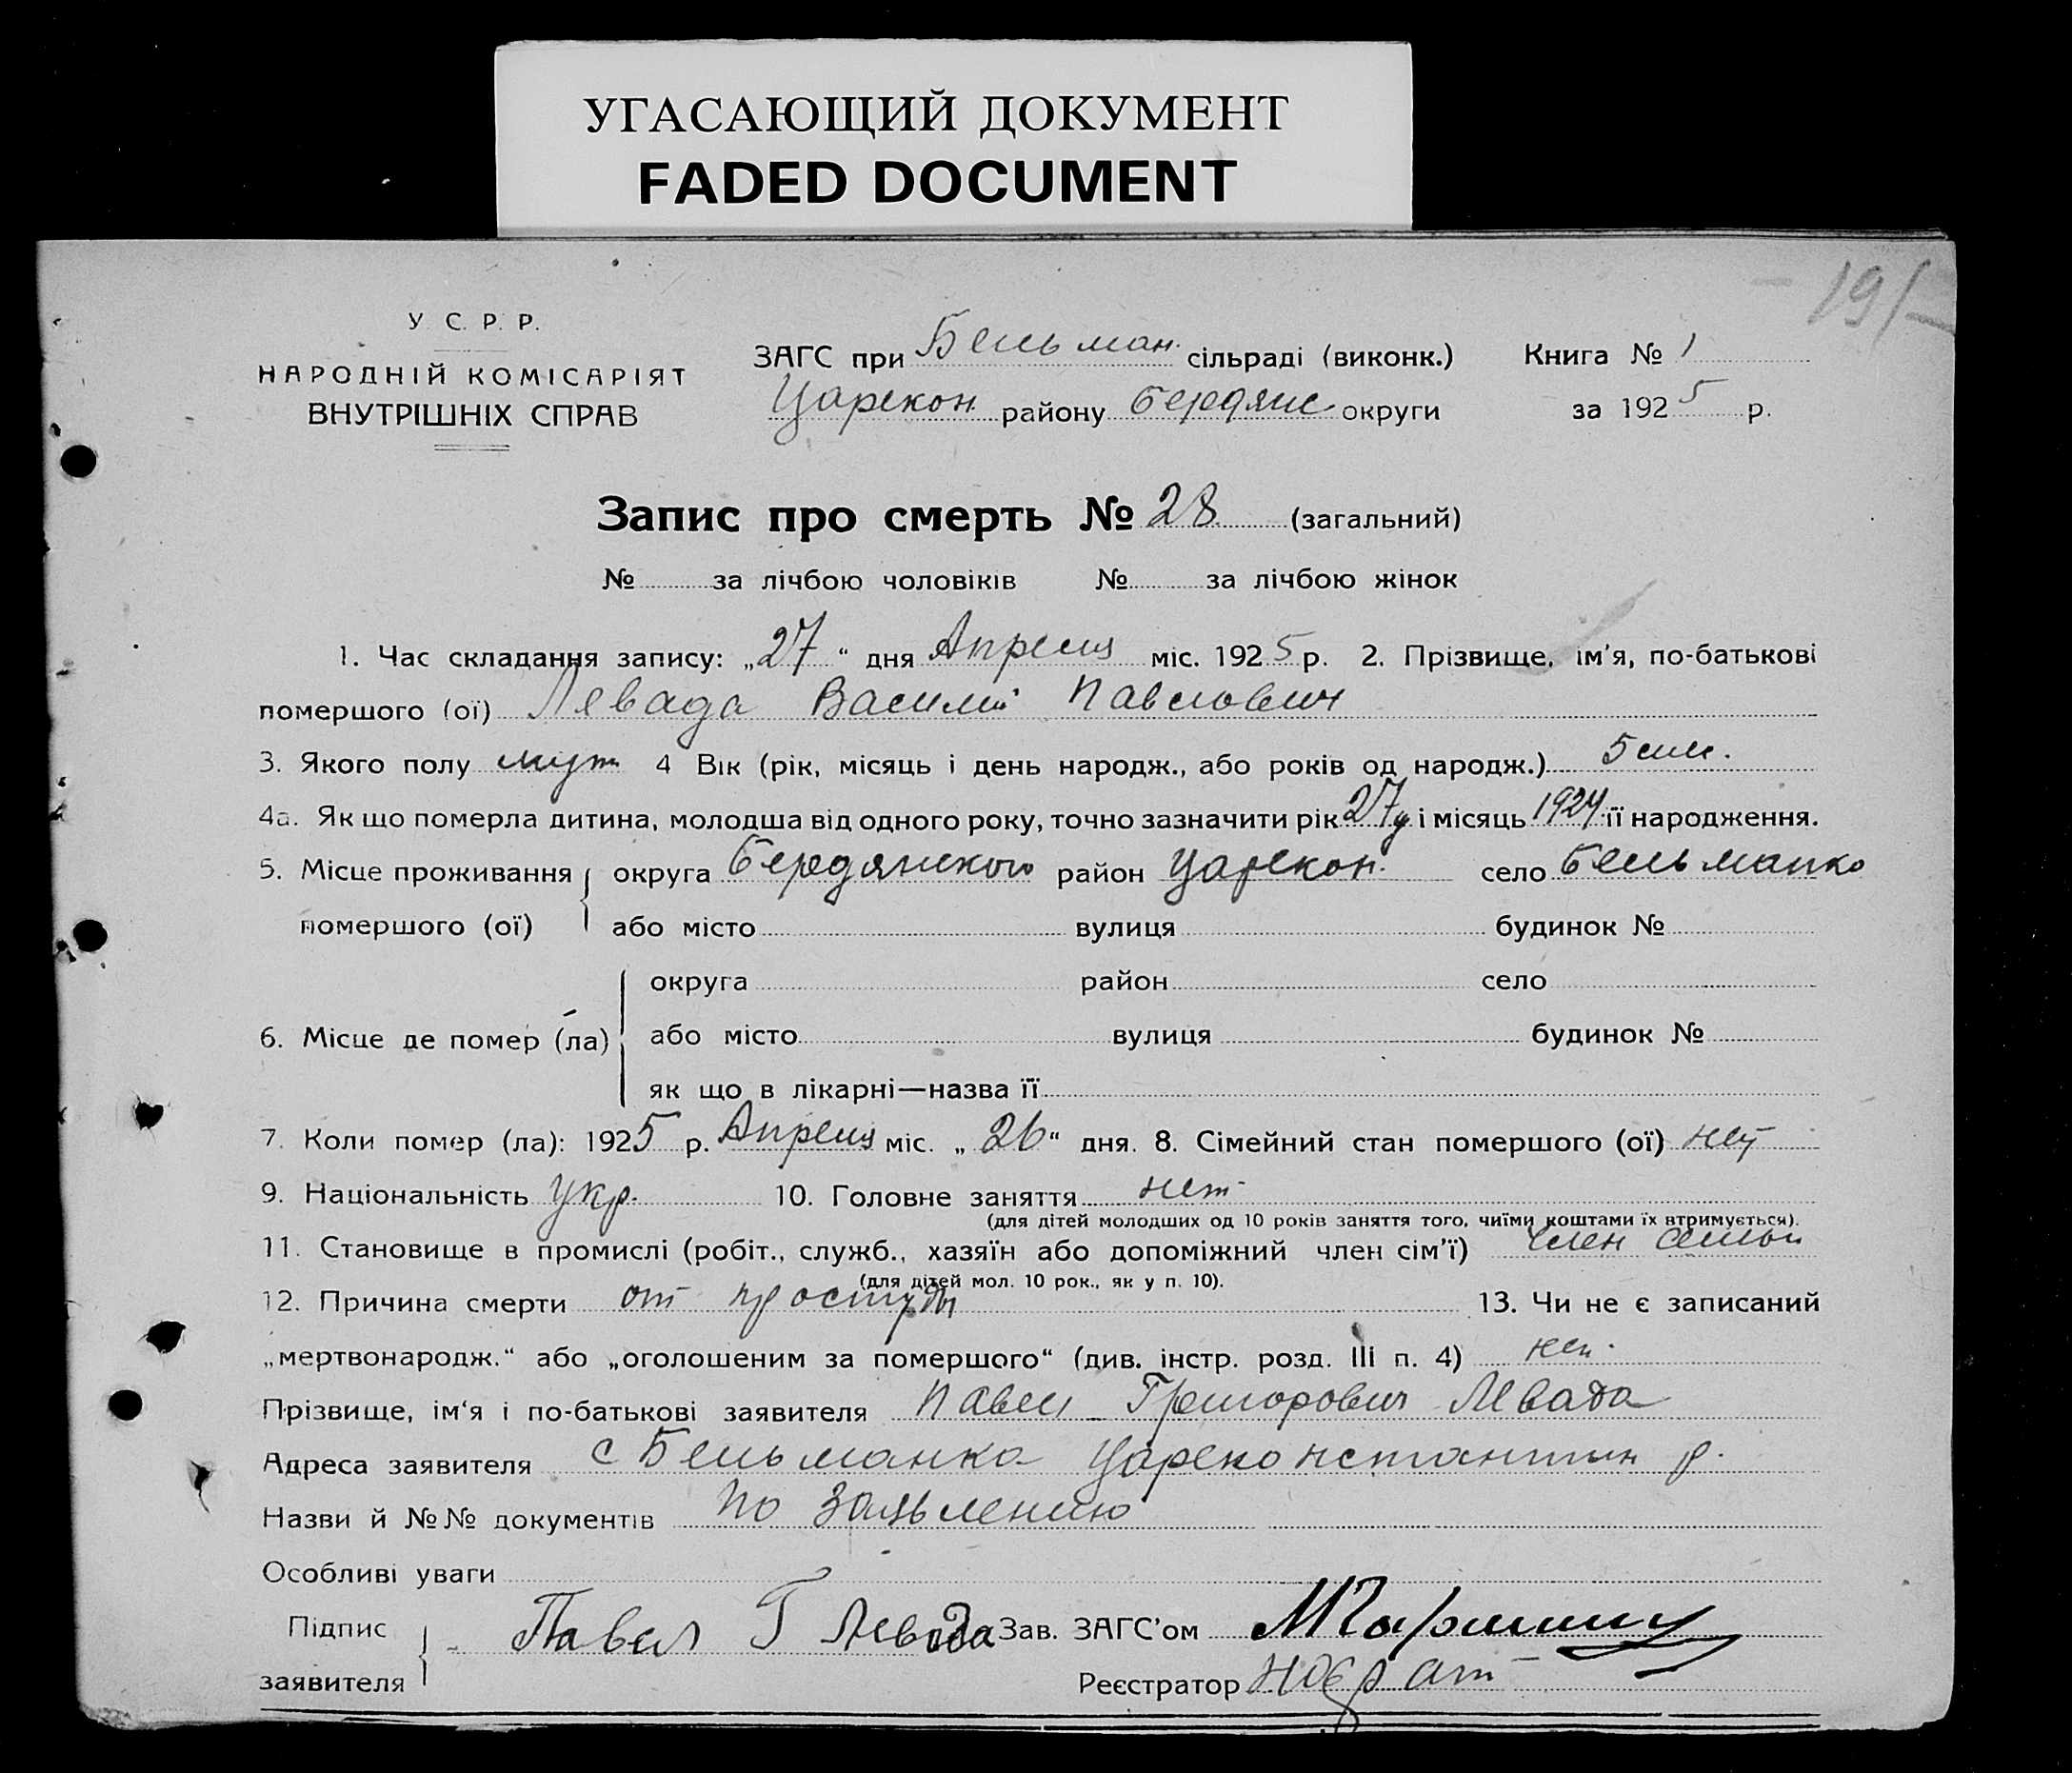 УГАСАЮЩИЙ ДОКУМЕНТ
FADED DOCUMENT
191
У. С. Р. Р.
НАРОДНІЙ КОМІСАРІЯТ
ВНУТРІШНІХ СПРАВ
ЗАГС при Бельман. сільраді (виконк.) Книга № 1
Царекон. району Бердянс. округи за 1925 р.
Запис про смерть № 28 (загальний)
№ за лічбою чоловіків № за лічбою жінок
1. Час складання запису: „27“ дня Апреля міс. 1925 р. 2. Прізвище, ім’я, по-батькові
помершого (ої) Левада Василий Павлович
3. Якого полу муж 4 Вік (рік, місяць і день народж., або років од народж.) 5
4а. Як що померла дитина, молодша від одного року, точно зазначити рік 27 і місяць 1924 її народження.
5. Місце проживання округа Бердянского район Царекон. село Бельманко
помершого (ої) або місто вулиця будинок №
округа район село
6. Місце де помер (ла) або місто вулиця будинок №
як що в лікарні—назва її
7. Коли помер (ла): 1925 р. Апреля міс. „26“ дня. 8. Сімейний стан помершого (ої) нет
9. Національність укр. 10. Головне заняття нет
(для дітей молодших од 10 років заняття того, чиїми коштами їх втримується).
11. Становище в промислі (робіт., служб., хазяїн або допоміжний член сім’ї) член семьи
(для дітей мол. 10 рок., як у п. 10).
12. Причина смерти от простуды 13. Чи не є записаний
„мертвонародж.“ або „оголошеним за помершого“ (див. інстр. розд. III п. 4) нет.
Прізвище, ім‘я і по-батькові заявителя Павел Григорович Левада
Адреса заявителя с Бельманка Цареконстантин р.
Назви й №№ документів По заявлению
Особливі уваги
Підпис Павел Г Левада Зав. ЗАГС’ом
заявителя Реєстратор